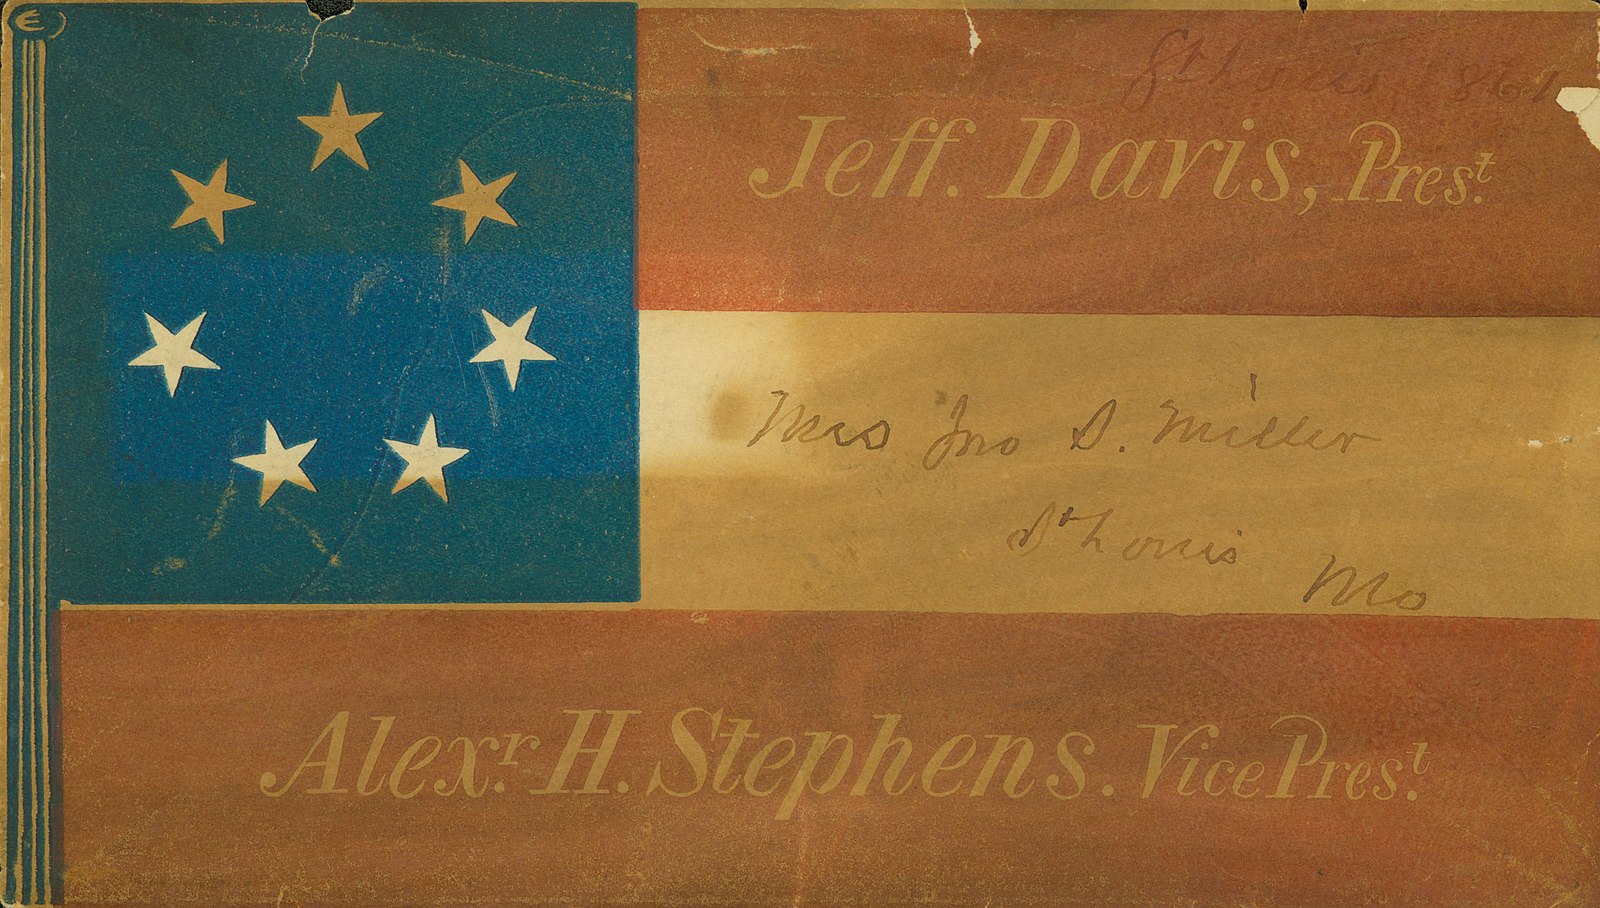 St Louis 1861
Jeff. Davis, Prest.
Mrs Jno S. Miller
St Louis
Mo
Alexr. H. Stephens. Vice Prest.